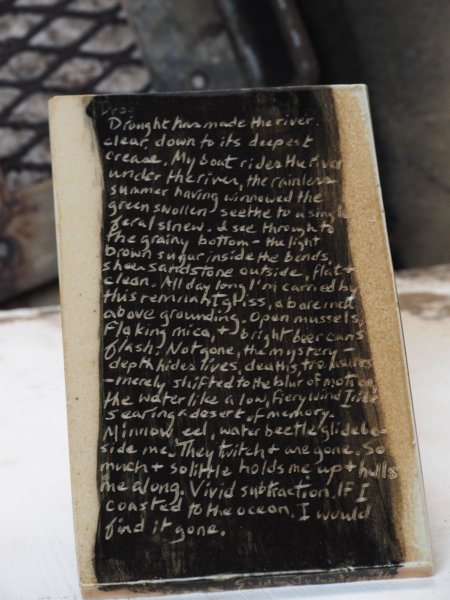 Drought has made the river
clear, down to its deepest
crease. My boat rides the river
under the river, the rainless
summer having winnowed the
green swollen seethe to a single
feral sinew. I see through to
the grainy bottom - the light
brown sugar inside the bends,
sheer sandstone outside, flat +
clean. All day long I'm carried by
this remnant gloss, a bare inch
above grounding. Open mussels,
flaking mica, + bright beer cans
flash. Not gone, the mystery -
depth hides lives, deaths,
- merely shifted to the blur of motion,
the water like a low, fiery wind I ride
searing a desert of memory.
Minnow, eel, water beetle glide be-
side me. They twitch + are gone. So
much + so little holds me up + hulls
me along. Vivid subtraction. If I
coasted to the ocean, I would
find it gone.